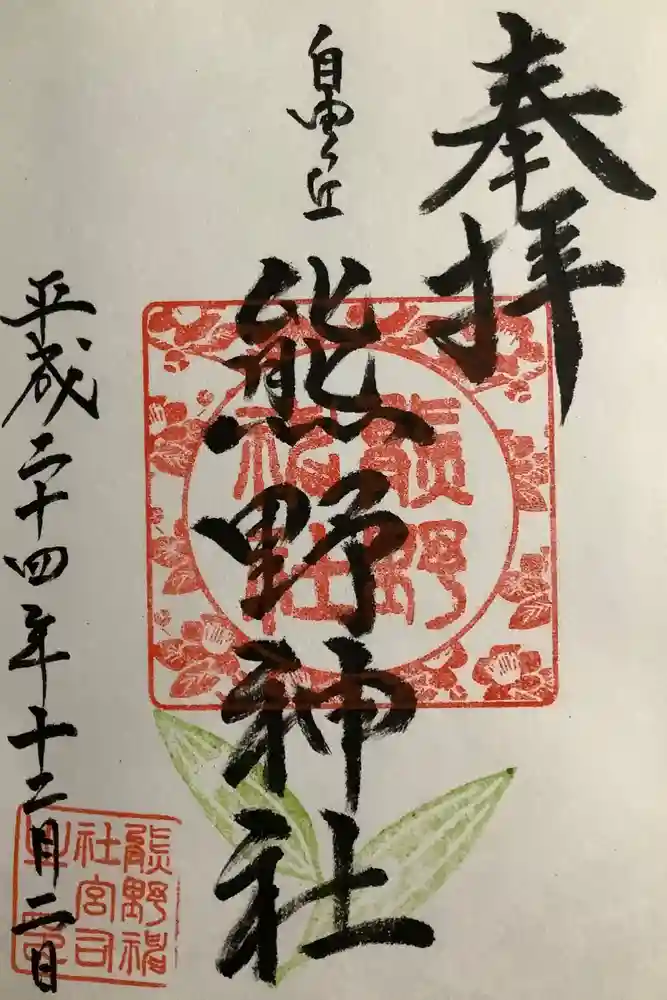 奉拝
自由ヶ丘
熊野神社
熊野
神社
平成二十四年十二月二日
熊野神
社宮司